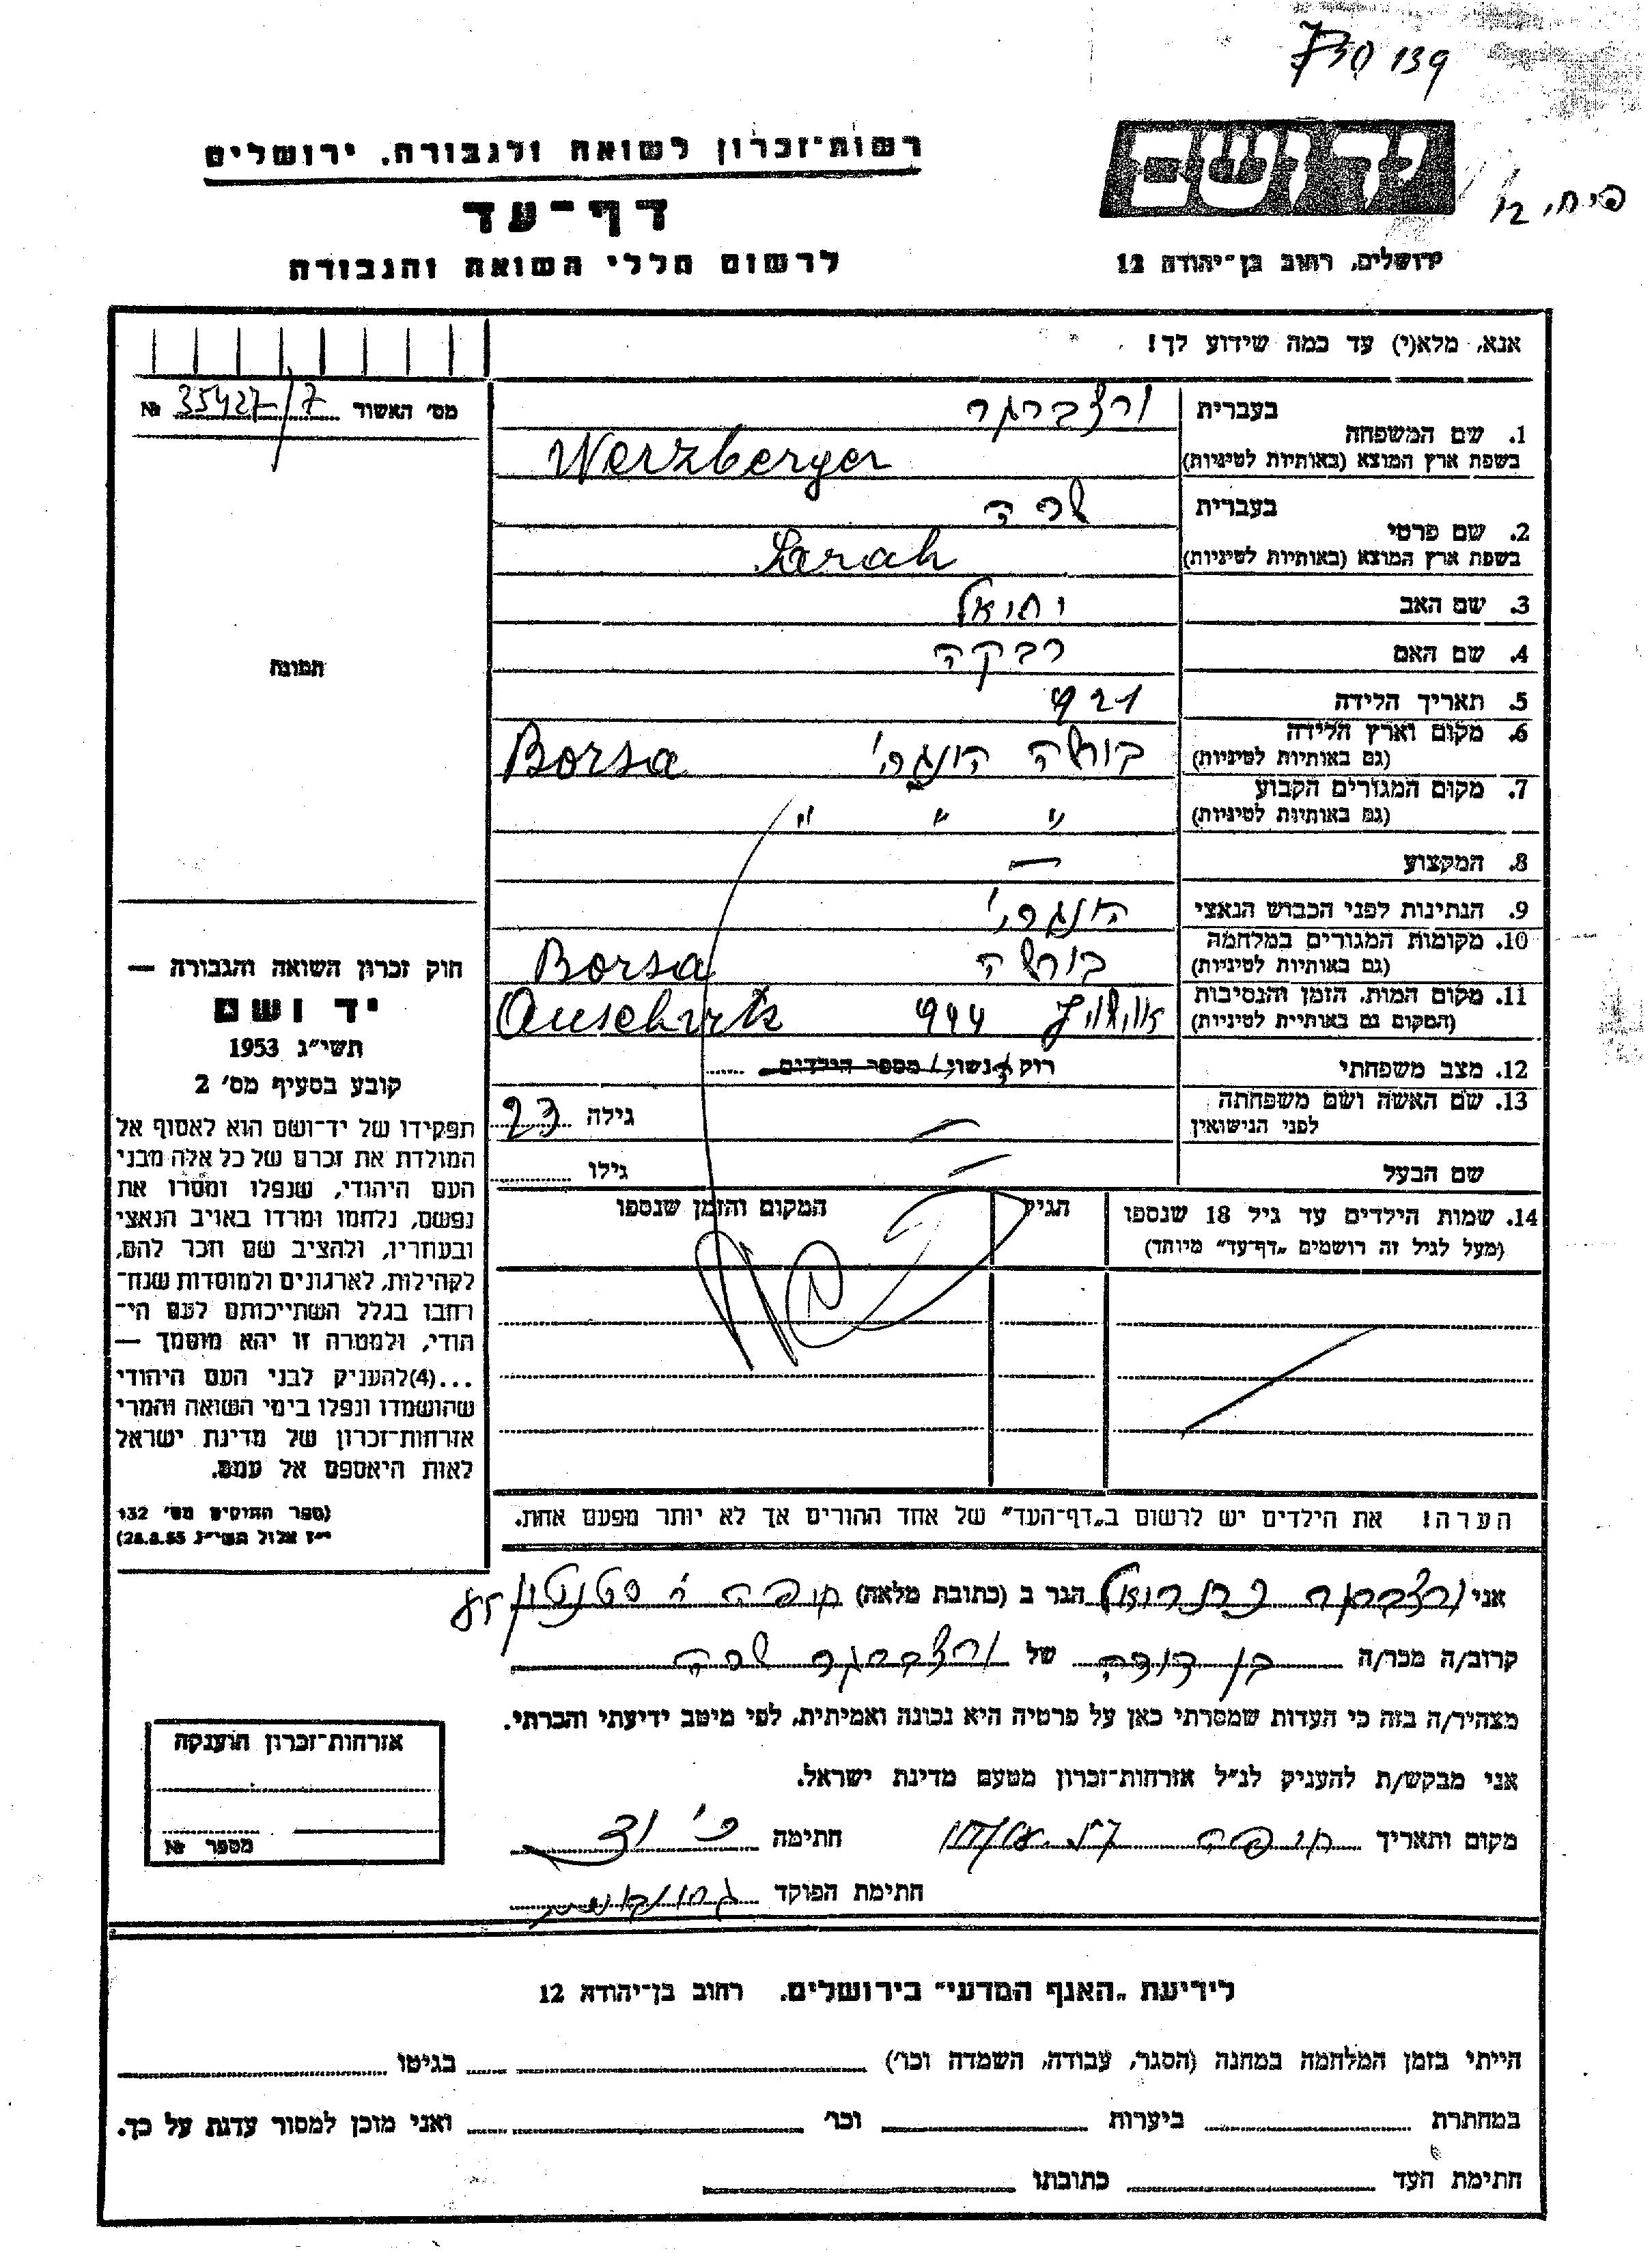 139
רשות־זכרון לשואה ולגבורה, ירושלים
דף־עד
לרשום חללי השואה והגבורה
יד ושם
ירושלים, רחוב בן־יהודה 12
אנא, מלא(י) עד כמה שידוע לך!
מס' האשור 35427/7 №
1. שם המשפחה
בעברית ורצברגר
בשפת ארץ המוצא (באותיות לטיניות) Werzberger
2. שם פרטי
בעברית שרה
בשפת ארץ המוצא (באותיות לטיניות) Sarah
3. שם האב יחואל
4. שם האם רבקה
5. תאריך הלידה 921
6. מקום וארץ הלידה בורשה הונגרי' Borsa
(גם באותיות לטיניות)
7. מקום המגורים הקבוע " " "
(גם באותיות לטיניות)
8. המקצוע —
9. הנתינות לפני הכבוש הנאצי הונגרי'
10. מקומות המגורים במלחמה בורשה Borsa
(גם באותיות לטיניות)
11. מקום המות, הזמן והנסיבות אושויץ 944 Auschvitz
(המקום גם באותיות לטיניות)
12. מצב משפחתי רוק/ה נשוי/ מספר הילדים
13. שם האשה ושם משפחתה — גילה 23
לפני הנישואין
שם הבעל — גילו
14. שמות הילדים עד גיל 18 שנספו הגיל המקום והזמן שנספו
(מעל לגיל זה רושמים „דף־עד" מיוחד)
תמונה
חוק זכרון השואה והגבורה —
יד ושם
תשי"ג 1953
קובע בסעיף מס' 2
תפקידו של יד־ושם הוא לאסוף אל
המולדת את זכרם של כל אלה מבני
העם היהודי, שנפלו ומסרו את
נפשם, נלחמו ומרדו באויב הנאצי
ובעוזריו, ולהציב שם וזכר להם,
לקהילות, לארגונים ולמוסדות שנח־
רחבו בגלל השתייכותם לעם הי־
הודי, ולמטרה זו יהא מוסמך —
...(4)להעניק לבני העם היהודי
שהושמדו ונפלו בימי השואה והמרי
אזרחות־זכרון של מדינת ישראל
לאות היאספם אל עמם.
(ספר החוקים מס' 132
י"ז אלול תשי"ג 28.8.53)
הערה! את הילדים יש לרשום ב„דף־העד" של אחד ההורים אך לא יותר מפעם אחת.
אני ורצברגר הגר ב (כתובת מלאה) חיפה
קרוב/ה מכר/ה בן דודה של ורצברגר שרה
מצהיר/ה בזה כי העדות שמסרתי כאן על פרטיה היא נכונה ואמיתית, לפי מיטב ידיעתי והכרתי.
אני מבקש/ת להעניק לנ"ל אזרחות־זכרון מטעם מדינת ישראל.
מקום ותאריך חיפה חתימה
חתימת הפוקד
אזרחות־זכרון הוענקה
מספר №
לידיעת „האגף המדעי" בירושלים, רחוב בן־יהודה 12
הייתי בזמן המלחמה במחנה (הסגר, עבודה, השמדה וכו') בגיטו
במחתרת ביערות וכו' ואני מוכן למסור עדות על כך.
חתימת העד כתובתו